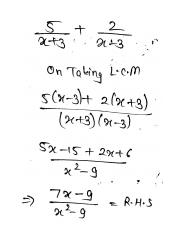 5/(x+3) + 2/(x-3)
On Taking L.C.M
5(x-3)+2(x+3)/(x+3)(x-3)
5x-15+2x+6/x²-9
⇒ 7x-9/x²-9 = R.H.S